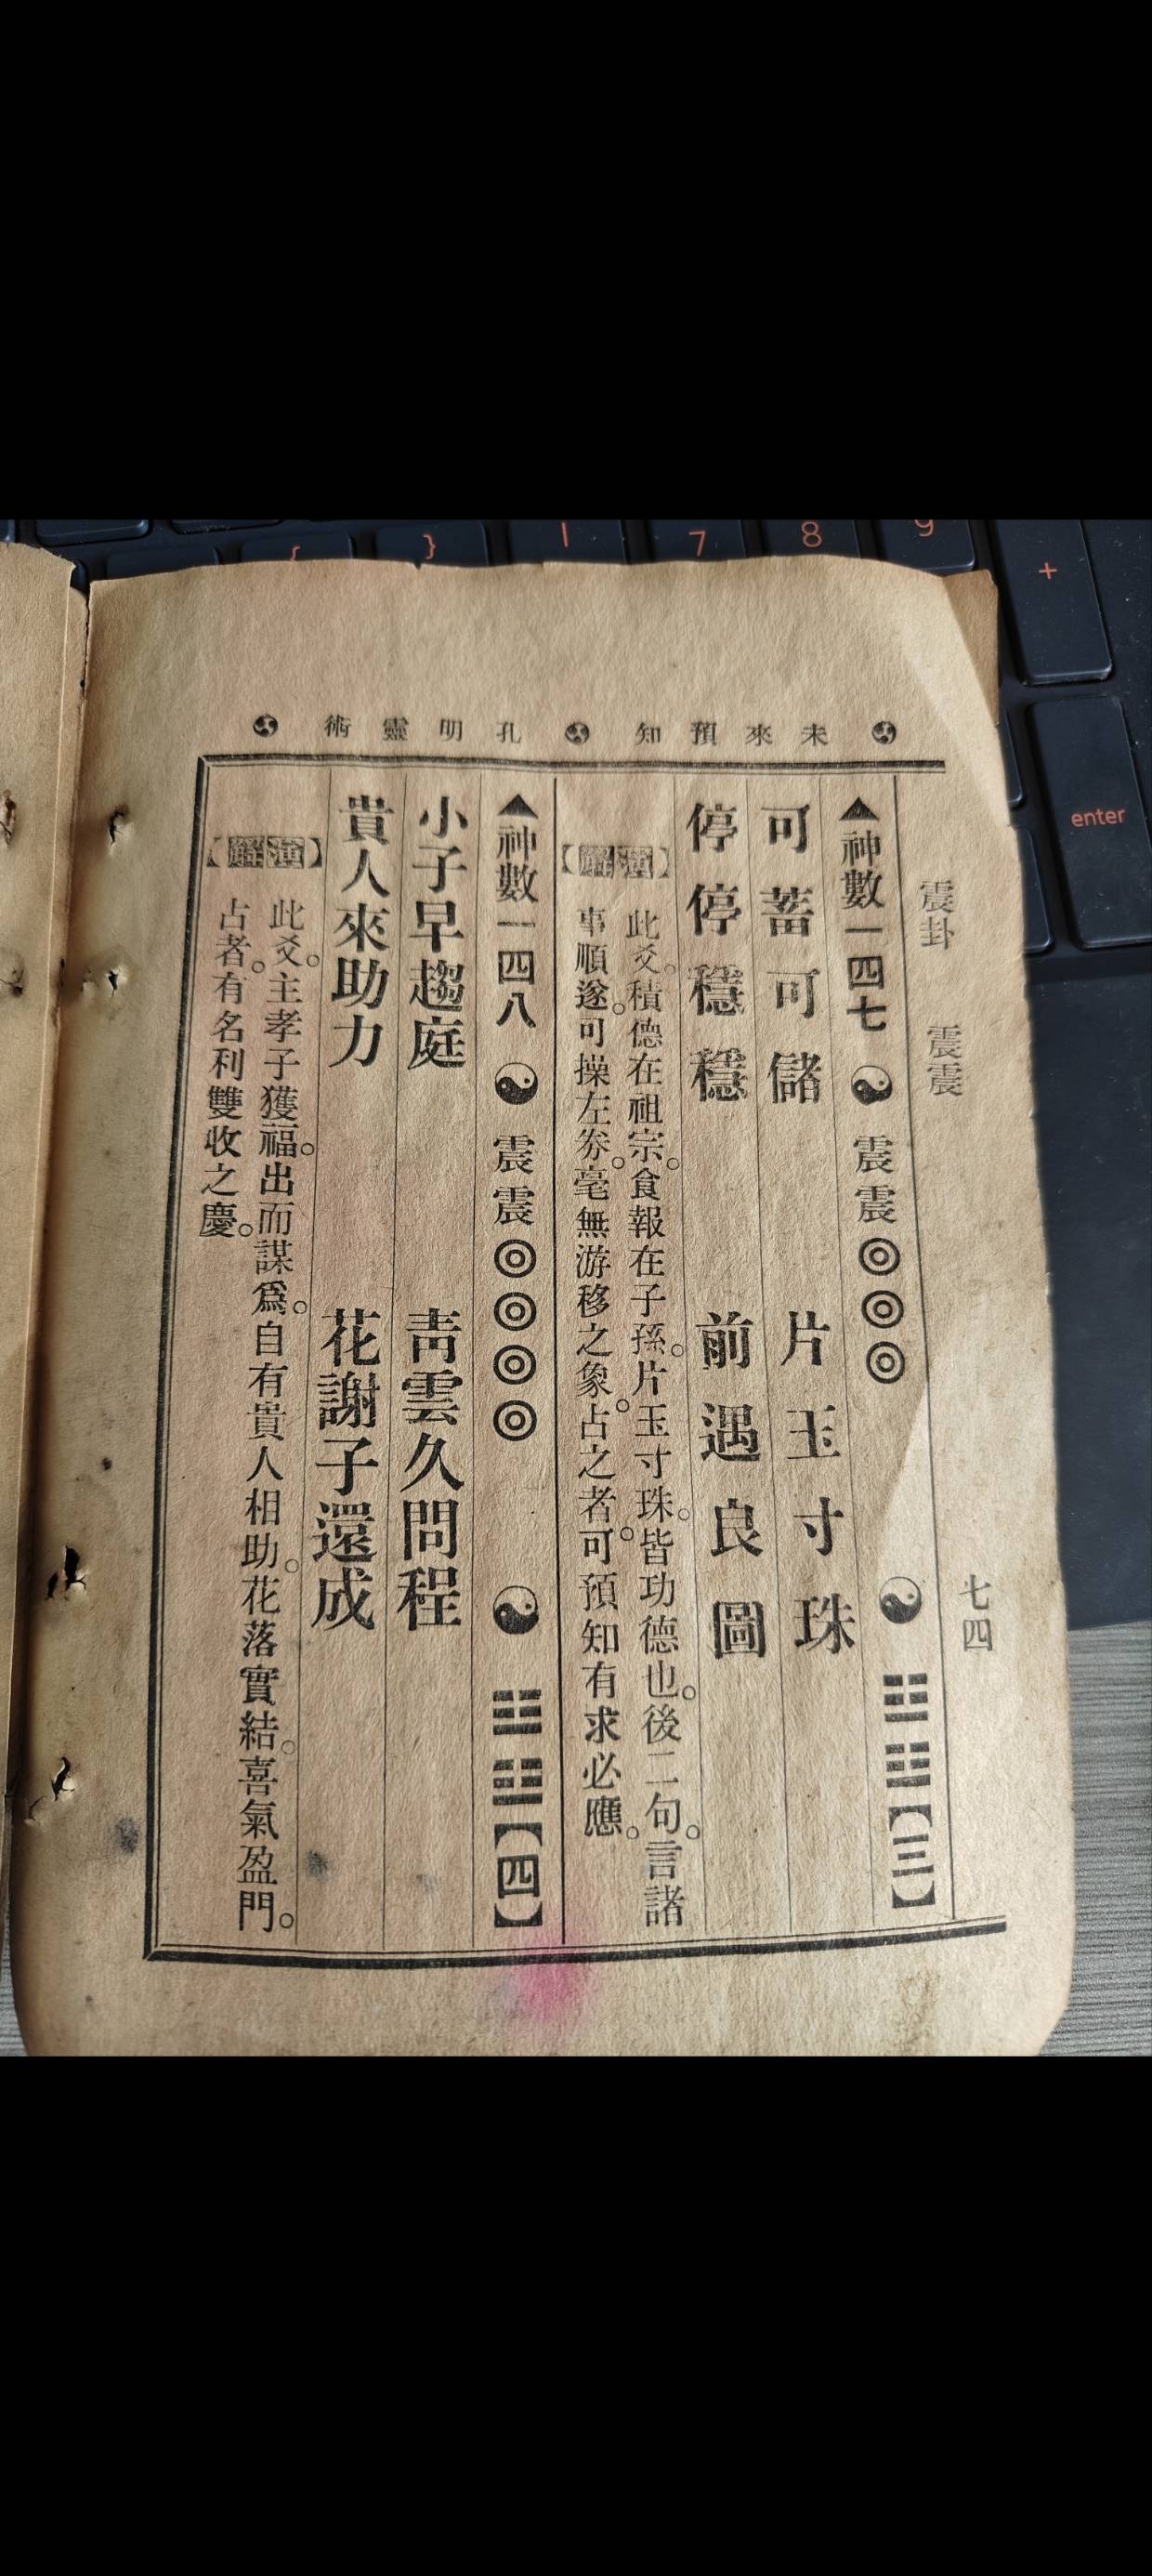 未來預知 孔明靈術
震卦 震震 七四
▲神數一四七 ☯ 震震◎◎◎ ☯ ☳☳【三】
可蓄可儲 片玉寸珠
停停穩穩 前遇良圖
【演解】
此爻。積德在祖宗。食報在子孫。片玉寸珠。皆功德也。後二句。言諸
事順遂。可操左券。毫無游移之象。占之者。可預知有求必應。
▲神數一四八 ☯ 震震◎◎◎◎ ☯ ☳☳【四】
小子早趨庭 靑雲久問程
貴人來助力 花謝子還成
【演解】
此爻。主孝子獲福。出而謀爲。自有貴人相助。花落實結。喜氣盈門。
占者。有名利雙收之慶。
{
}
7
8
9
+
enter